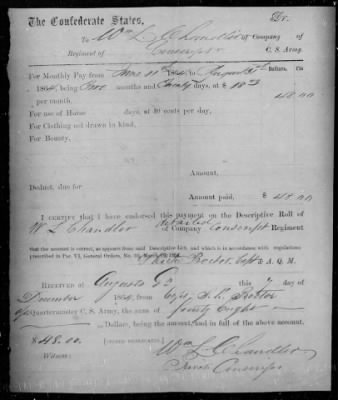 The Confederate States, Dr.
To Wm L Chandler of Company of
Regiment of Conscript C. S. Army.
For Monthly Pay from June 11th 1864, to August 31st Dollars. Cts
1864, being two months and twenty days, at $ 18
per month. 48 00
For use of Horse days, at 40 cents per day,
For Clothing not drawn in kind,
For Bounty,
Amount,
Deduct, due for
Amount paid, $ 48 00
I certify that I have endorsed this payment on the Descriptive Roll of
W L Chandler detailed of Company Conscript Regiment
that the account is correct, as appears from said Descriptive List, and which is in accordance with regulations
prescribed in Par. VI, General Orders, No. March
Capt & A. Q. M.
Received at Augusta Ga this 7 day of
December 1864, from Capt
Quartermaster C. S. Army, the sum of forty eight
Dollars, being the amount, and in full of the above account.
$ 48.00. [SIGNED DUPLICATES.]
Witness: Wm L Chandler
Conscript